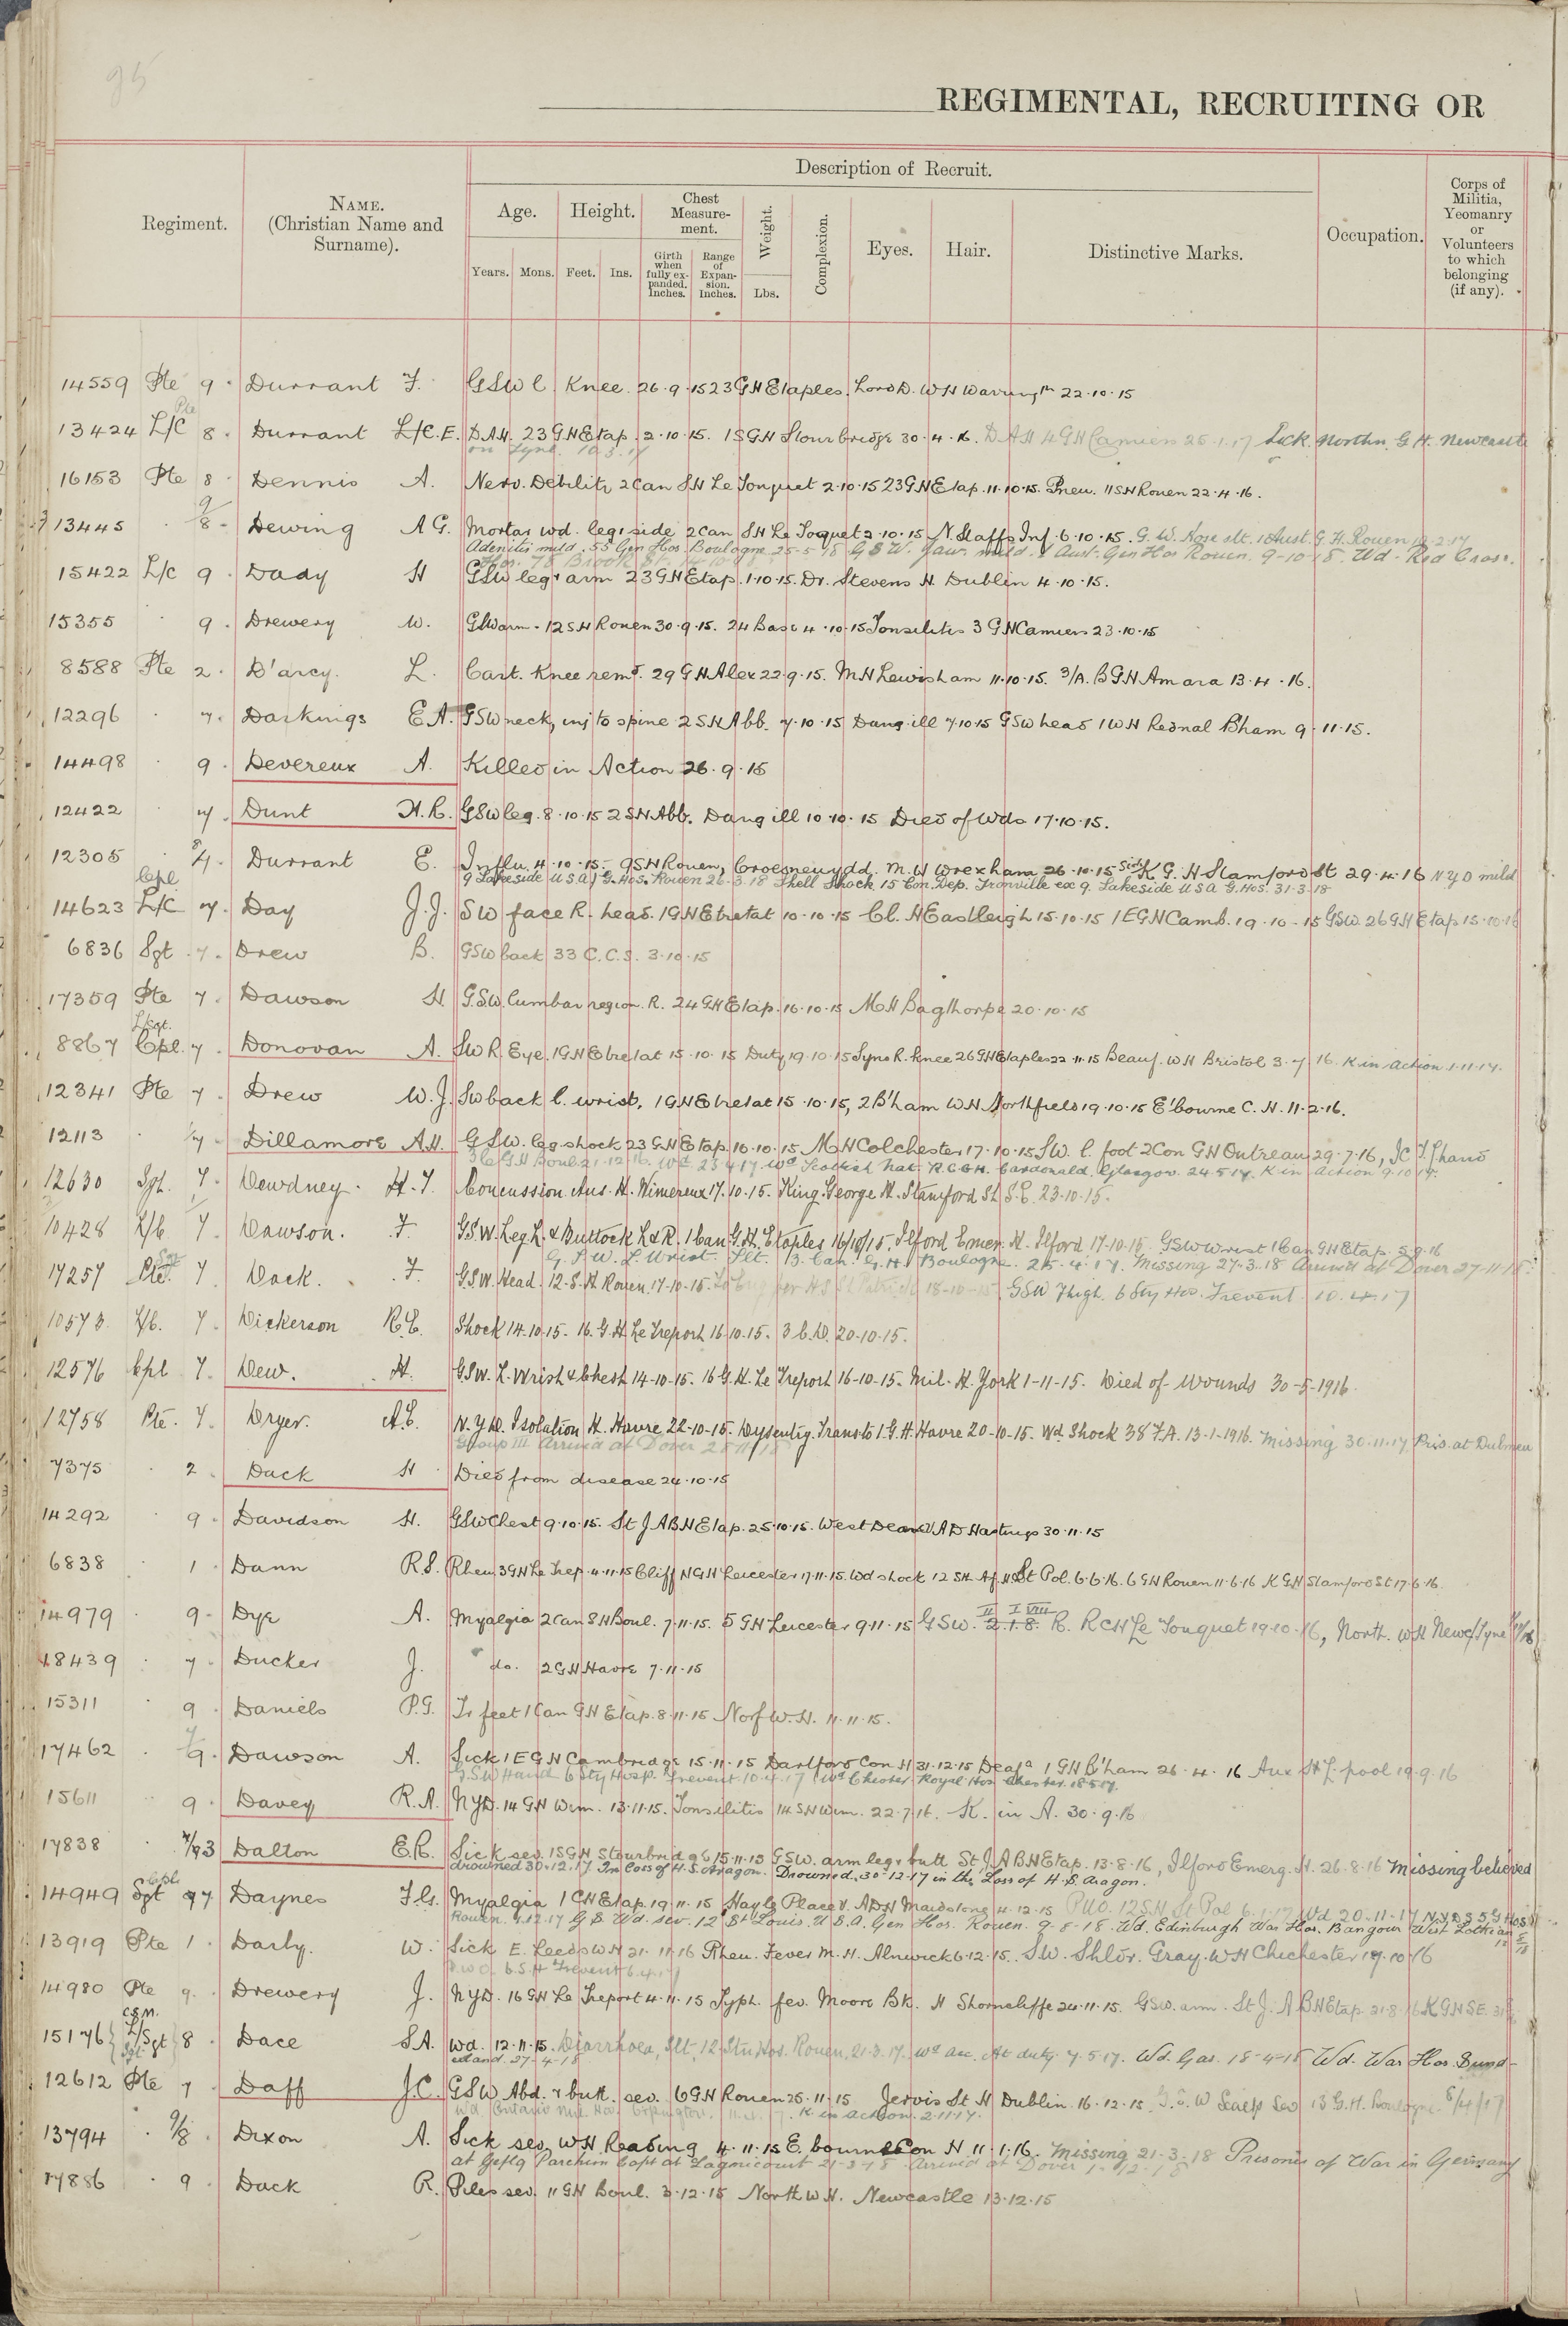 95
REGIMENTAL, RECRUITING OR
Regiment.
NAME.
(Christian Name and
Surname).
Description of Recruit.
Age.
Height.
Chest
Measure-
ment.
Weight.
Complexion.
Eyes.
Hair.
Distinctive Marks.
Occupation.
Corps of
Militia,
Yeomanry
or
Volunteers
to which
belonging
(if any).
Years.
Mons.
Feet.
Ins.
Girth
when
fully ex-
panded.
Inches.
Range
of
Expan-
sion.
Inches.
Lbs.
14559 Pte 9. Durrant F. GSW l. Knee. 26.9.15 23 GH Etaples. Lord D. WH Waringtn 22.10.15
Pte
13424 L/C 8. Durrant L/C. E. DAH. 23 GH Etap. 2.10.15. 1SGH Stourbridge 30.4.16. DAH 4 GH Camiers 25.1.17 Sick. Northn. G.H. Newcastle
on Tyne. 10.3.17
16153 Pte 8 Dennis A. Nerv. Debility 2 Can SH Le Touquet 2.10.15 23 GH Etap. 11.10.15. Pneu. 11 SH Rouen 22.4.16.
13445 9/8. Dewing A G. Mortar wd. leg & side 2 Can SH Le Toquet 2.10.15 N. Staffs Inf. 6.10.15. G.W. Nose slt. 1 Aust. G.H. Rouen 12.2.17
Adenitis mild. 55 Gen Hos. Boulogne 25-5-18 G S W. Jaw. mild. 1 Aust. Gen Hos Rouen. 9-10-18. Wd. Red Cross.
15422 L/c 9. Dady H GSW leg & arm 23 GH Etap. 1.10.15. Dr. Stevens H. Dublin 4.10.15.
15355 9. Drewery W. GSW arm. 12 SH Rouen 30.9.15. 24 Base 4.10.15 Tonsilitis 3 GH Camiers 23.10.15
8588 Pte 2. D'arcy. L. Cart. Knee remd. 29 GH Alex 22.9.15. MH Lewisham 11.10.15. 3/A. BGH Amara 13.4.16.
12296 7. Darkings E A. GSW neck, inj to spine 2 SH Abb. 7.10.15 Dang ill 7.10.15 GSW head 1 WH Rednal B'ham 9.11.15.
14498 9. Devereux A. Killed in Action 26.9.15
12422 7. Dunt H.R. GSW leg. 8.10.15 2 SH Abb. Dang ill 10.10.15 Died of Wds 17.10.15.
12305 8/7. Durrant E. Influ. 4.10.15. 9 SH Rouen, Croesnewydd. M.H Wrexham 26.10.15 Sick K.G.H Stamford St 29.4.16 NYD mild
9 Lakeside U S A G. Hos. Rouen 26.3.18 Shell Shock 15 Con. Dep. Trouville ex 9. Lakeside U S A G. Hos. 31.3.18
Cpl
14623 L/C 7. Day J.J. SW face R. head. 1 GH Etretat 10.10.15 Cl. H Eastleigh 15.10.15 1 EGH Camb. 19.10.15 GSW. 26 GH Etap 15.10.16
6836 Sgt 7. Drew B. GSW back 33 C.C.S. 3.10.15
17359 Pte 7. Dawson H. G.S.W. lumbar region. R. 24 GH Etap. 16.10.15 MH Bagthorpe 20.10.15
L/Sgt.
8867 Cpl. 7. Donovan A. SW R. Eye. 1 GH Etretat 15.10.15 Duty 19.10.15 Syno R. Knee 26 GH Etaples 22.11.15 Beauf. WH Bristol 3.7.16. K in action 1.11.17.
12341 Pte 7. Drew W.J. SW back l. wrist. 1 GH Etretat 15.10.15, 2 B'ham WH Northfield 19.10.15 E'bourne C.H. 11.2.16.
12113 7. Dillamore A.H. GSW. leg. shock 23 GH Etap. 16.10.15 MH Colchester 17.10.15 SW. l. foot 2 Con GH Outreau 29.7.16, IC T. Hand
GH Boul. 21.12.16. Wd 23.4.17 Wd Scottish Nat. R.C.G.H. Cardonald. Glasgow. 24.5.17. K in action 9.10.17.
12630 Sgt. 7. Dewdney. H.T. Concussion Aus. H. Wimereux 17.10.15. King George H. Stamford St. S.E. 23.10.15.
10428 L/C. 7. Dawson. F. G.S.W. Leg L. & Buttock L & R. 1 Can. G.H. Etaples 16/10/15. Ilford Emer. H. Ilford 17-10-15. GSW Wrist 1 Can GH Etap. 5.9.16
G.S.W. L. Wrist. Slt. 13. Can. G.H. Boulogne. 25.4.17. Missing 27-3-18 Arrived at Dover 27-11-18.
17257 Pte. 7. Dack. F. G.S.W. Head. 12.S.H. Rouen. 17-10-15. To Eng per H S St Patrick 18-10-15. GSW Thigh. 6 Sty Hos. Frevent. 10.4.17
10573 L/C. 7. Dickerson R.C. Shock 14.10.15. 16.G.H. Le Treport 16.10.15. 3 C.D. 20-10-15.
12576 Cpl 7. Dew. H. G.S.W. L. Wrist & Chest 14-10-15. 16 G.H. Le Treport 16-10-15. Mil. H. York 1-11-15. Died of Wounds 30-5-1916.
12758 Pte. 7. Dryer. A.E. N.Y.D. Isolation H. Havre 22-10-15. Dysentry. Trans to 1.G.H. Havre 20-10-15. Wd. Shock 38 F.A. 13-1-1916. Missing 30.11.17 Pris. at Dulmen
Group III Arrived at Dover
7375 2. Dack H Died from disease 24.10.15
14292 9. Davidson H. GSW Chest 9.10.15. St J A B H Etap. 25.10.15. West Dean VAD Hastings 30.11.15
6838 1. Dann R.S. Rheu 3 GH Le Trep. 4.11.15 Cliff H GH Leicester 17.11.15. Wd shock 12 SH St Pol. 6.6.16. 6 GH Rouen 11.6.16 K GH Stamford St 17.6.16.
14979 9. Dye A. Myalgia 2 Can SH Boul. 7.11.15. 5 GH Leicester 9.11.15 GSW. 2.1.8. R. R C H Le Touquet 19.10.16, North. WH Newc/Tyne
II I VIII
18439 7. Ducker J. do. 2 GH Havre 7.11.15
15311 9. Daniels P.G. Tr feet 1 Can GH Etap. 8.11.15 Norf W.H. 11.11.15.
17462 7/9. Dawson A. Sick 1 EGH Cambridge 15.11.15 Dartford Con H 31.12.15 Deafs 1 GH B'ham 26.4.16 Aux H L'pool 19.9.16
GSW Hand 6 Sty Hosp. Frevent. 10.4.17 Wd Chester Royal Hos. Chester. 18.5.17.
15611 9. Davey R.A. NYD. 14 GH Wim. 13.11.15. Tonsilitis 14 SH Wim. 22.7.16. K. in A. 30.9.16
17838 7/9 3 Dalton E.R. Sick sev. 1SGH Stourbridge 15.11.15 GSW. arm leg & butt St J A B H Etap. 13.8.16, Ilford Emerg. H. 26.8.16 Missing believed
drowned 30.12.17 In loss of H.S. Aragon. Drowned. 30.12.17 in the Loss of H.S. Aragon.
Cpl
14949 Sgt 9 7 Daynes F.G. Myalgia 1 CH Etap. 19.11.15 Hayle Place V.A.D.H Maidstone 4.12.15 PUO. 12 SH St Pol 6.1.17 Wd 20-11-17 NYD S 5 G Hos
Rouen. 4.12.17 G.S. Wd. sev. 12 St Louis U.S.A. Gen Hos. Rouen. 9-8-18. Wd. Edinburgh War Hos. Bangour West Lothian
13919 Pte 1. Darby. W. Sick E. Leeds WH 21.11.16 Rheu. Fever M.H. Alnwick 6.12.15. SW. Shldr. Gray. WH Chichester 19.10.16
6.S.H Frevent 6.4.17
14980 Pte 9. Drewery J. NYD. 16 GH Le Treport 4.11.15 Typh. fev. Moore Bk. H Shorncliffe 24.11.15. GSW. arm. St J. A B H Etap 21.8.16 K G H S.E.
C.S.M.
15176 L/Sgt 8. Dace S.A. Wd. 12.11.15. Diarrhoea, Slt. 12 Stn Hos. Rouen. 21.3.17. Wd acc. At duty 7.5.17. Wd. Gas. 18-4-18 Wd. War Hos. Sund-
erland. 27-4-18
12612 Pte 7 Daff J.C. GSW Abd. & butt. sev. 6 GH Rouen 25.11.15 Jervis St H Dublin. 16.12.15. G.S.W Scalp Sev 13 G.H. Boulogne. 8/4/17
Wd. Ontario Mil. Hos. Orpington. K in action. 2.11.17.
13794 9/8 Dixon A. Sick sev. WH Reading 4.11.15 E. bourne Con H 11.1.16. Missing 21-3-18 Prisoner of War in Germany
at Gefg Parchim Capt at Lagnicourt 21-3-18 Arrived at Dover 1-12-18
17886 9. Dack R. Piles sev. 11 GH Boul. 3.12.15 North W.H. Newcastle 13.12.15